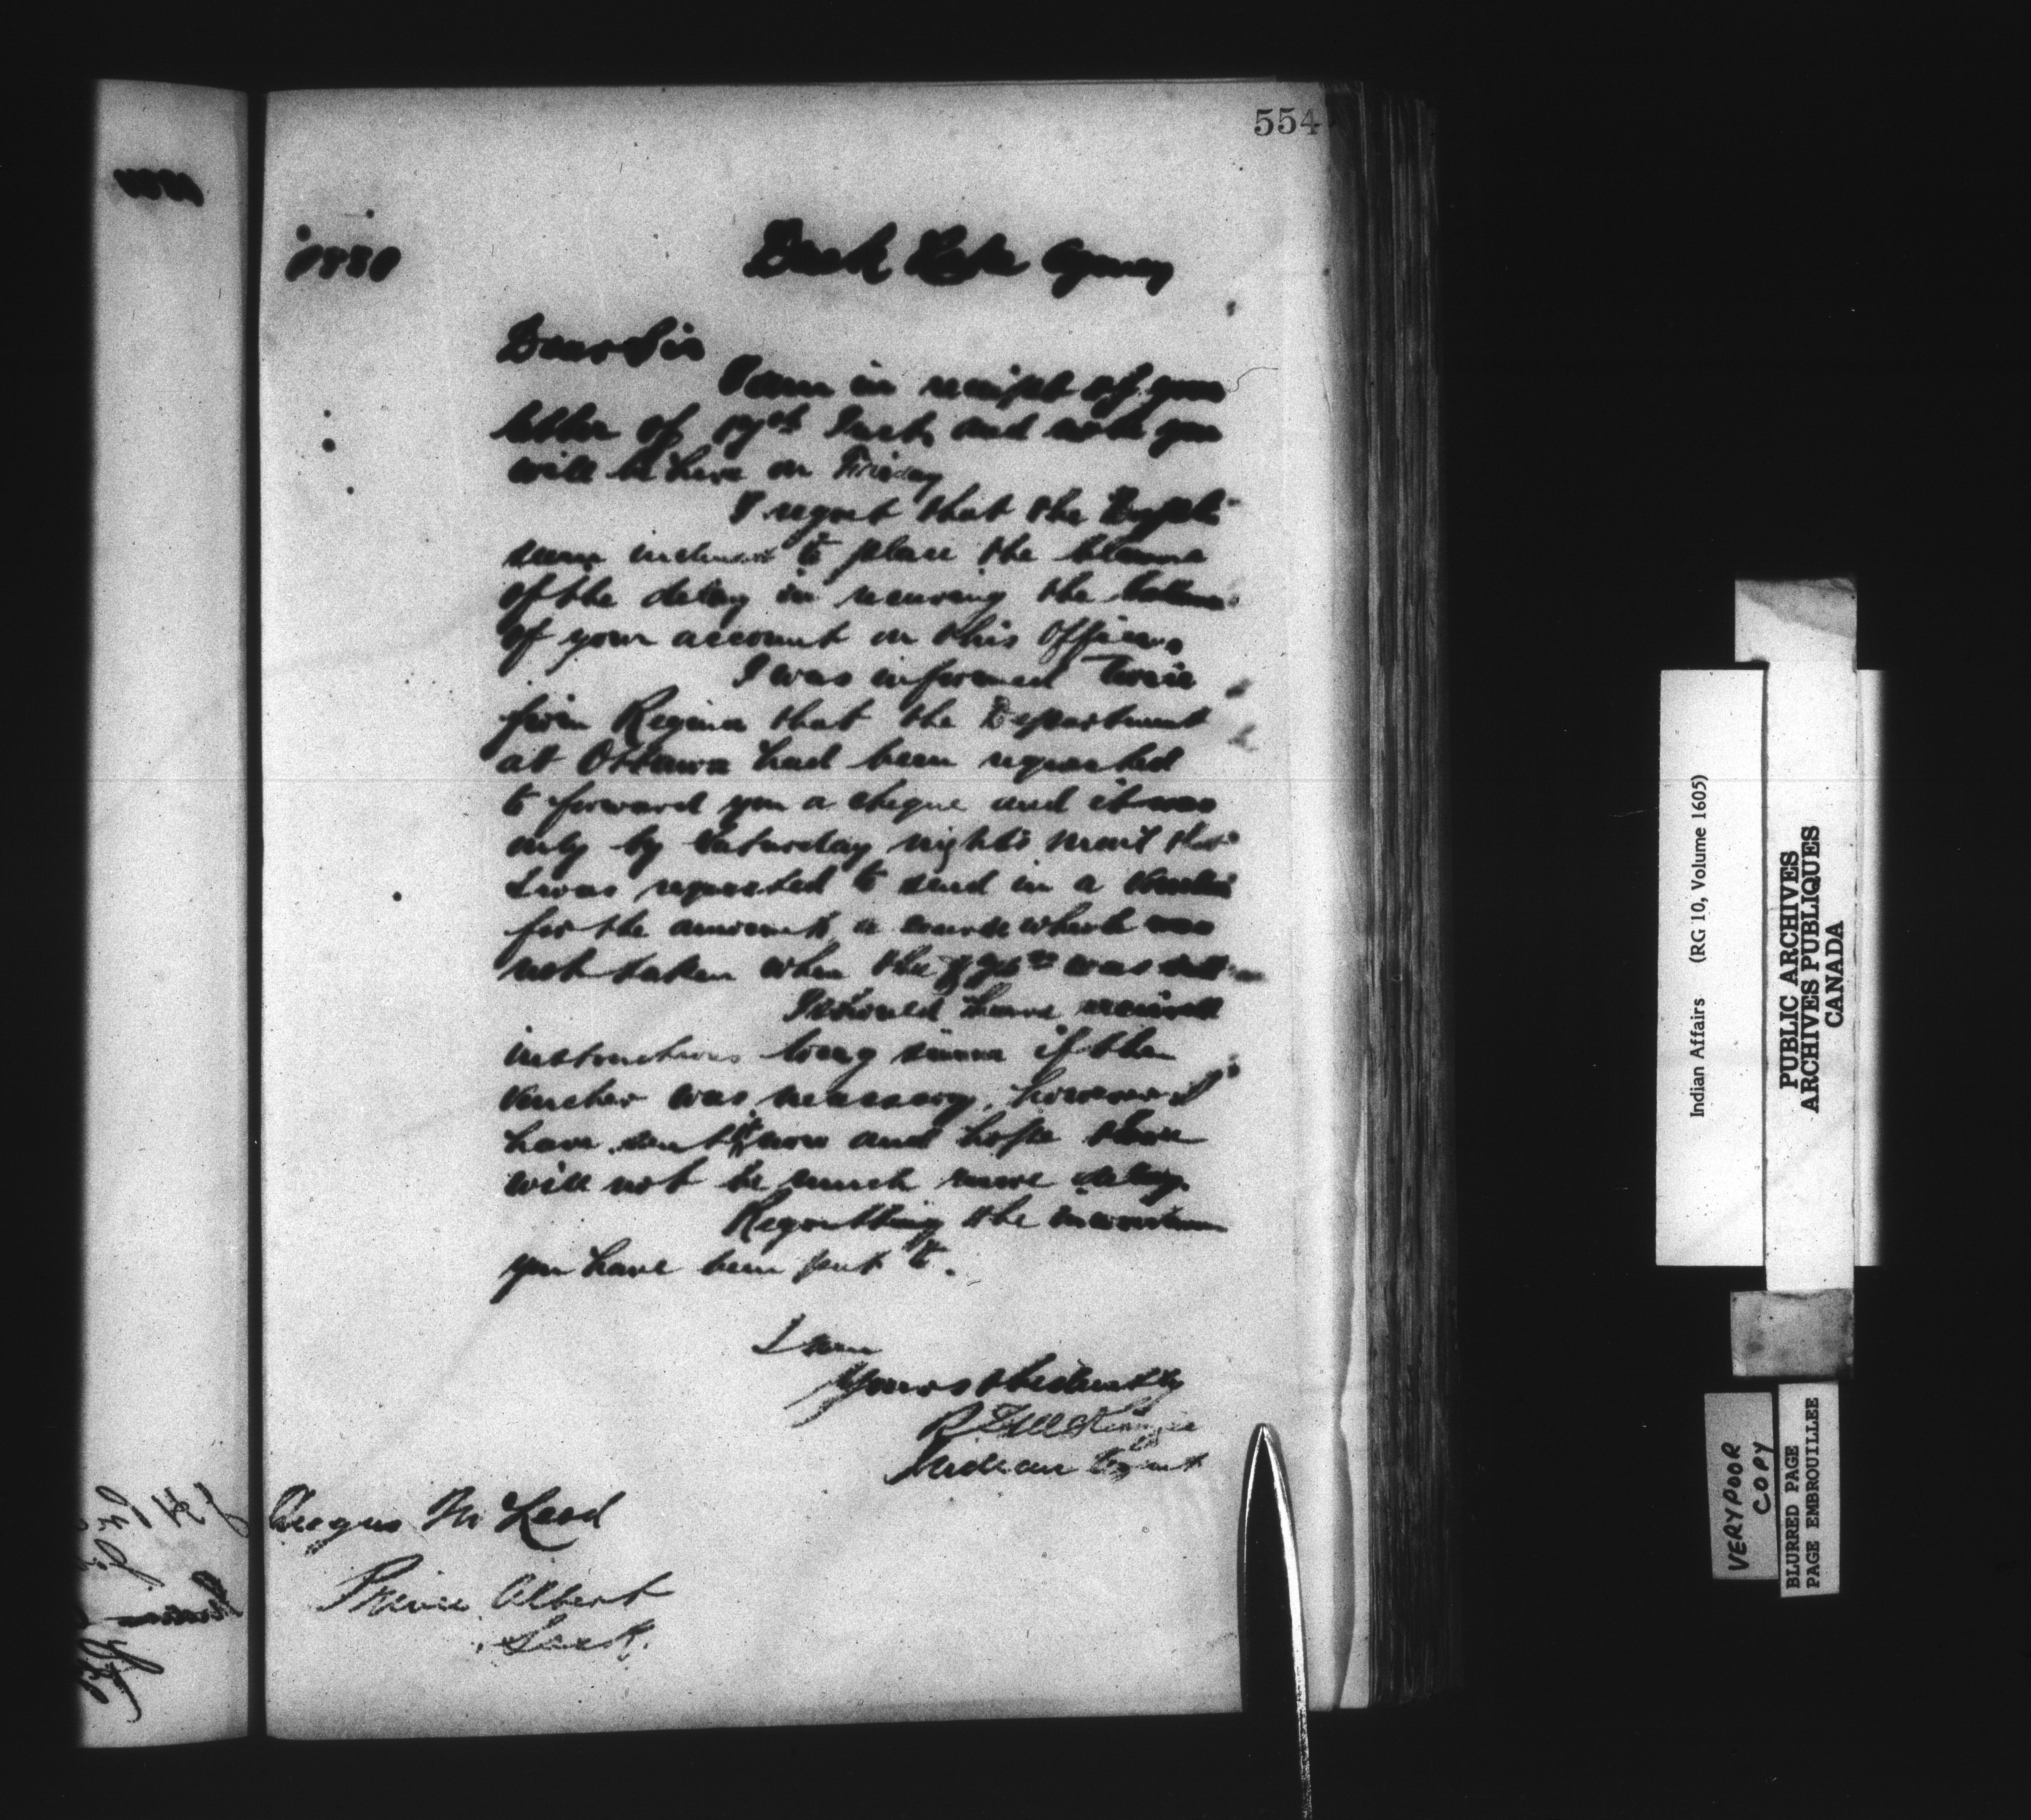 554
Duck Lake Agency
Dear Sir
I am in receipt of your
letter of 17th Inst, and note you
will be here on Friday
I regret that the Dept.
seem inclined to place the blame
of the delay in securing the balance
of your account on this Office.
I was informed twice
from Regina that the Department
at Ottawa had been requested
to forward you a cheque and it was
only by Saturday night's mail that
I was requested to send in a voucher
for the amount, a course which was
not taken when the was
I should have received
instructions long since if the
voucher was necessary, however I
have sent it now and hope there
will not be much more delay.
Regretting the inconvenience
you have been put to.
I am
Yours obediently
R S McKenzie
Indian Agent
Angus McLeod
Prince Albert
Sask.
Indian Affairs (RG 10, Volume 1605)
PUBLIC ARCHIVES
ARCHIVES PUBLIQUES
CANADA
VERY POOR
COPY
BLURRED PAGE
PAGE EMBROUILLEE